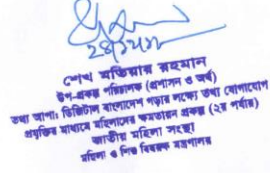 শেখ মতিয়ার রহমান
উপ-প্রকল্প পরিচালক (প্রশাসন ও অর্থ)
তথ্য আপাঃ ডিজিটাল বাংলাদেশ গড়ার লক্ষ্যে তথ্য যোগাযোগ
প্রযুক্তির মাধ্যমে মহিলাদের ক্ষমতায়ন প্রকল্প (২য় পর্যায়)
জাতীয় মহিলা সংস্থা
মহিলা ও শিশু বিষয়ক মন্ত্রণালয়